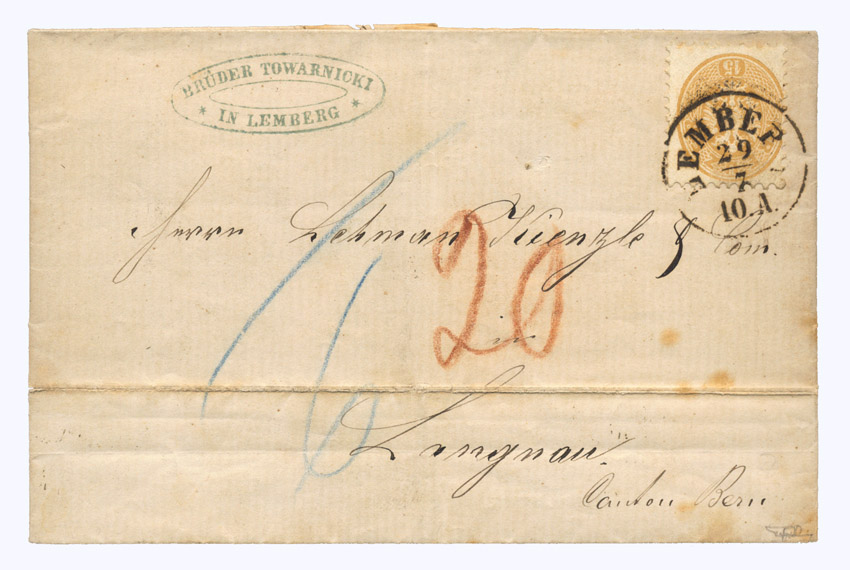 BRÜDER TOWARNICKI
* IN LEMBERG *
15
LEMBER
29
7
10.A.
Herrn Lehman Kienzle & Com.
20
in
6
Langnau.
Canton Bern